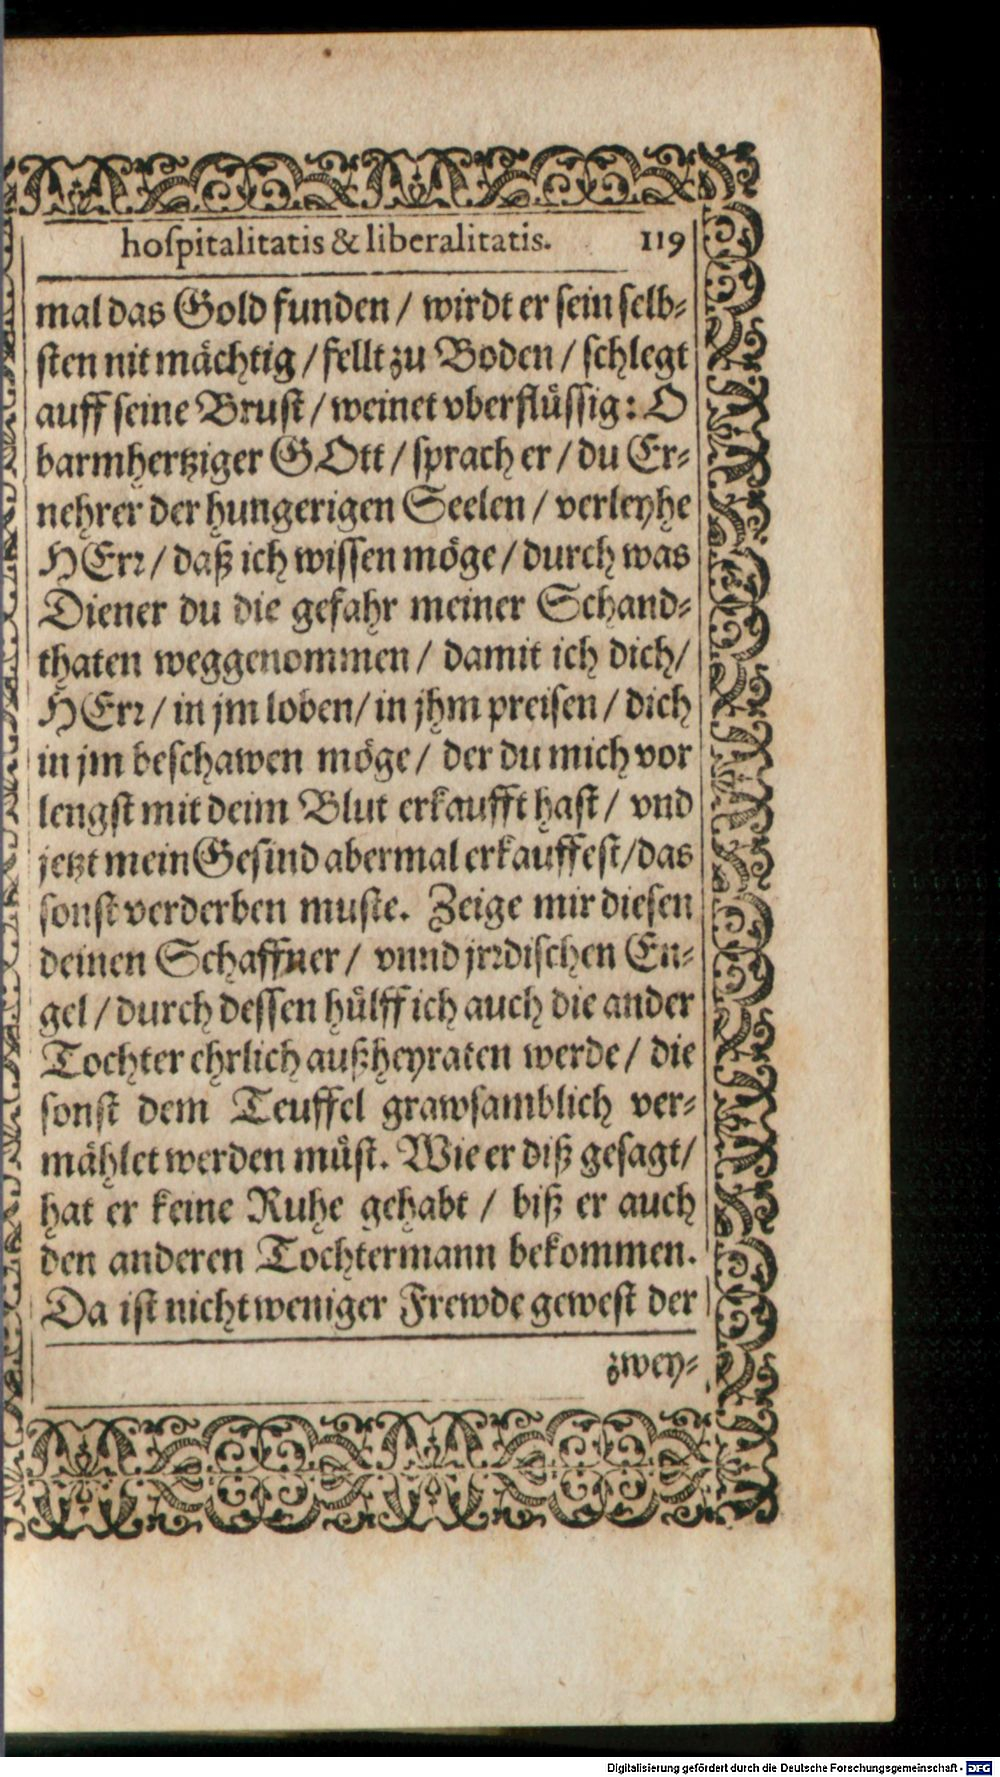 hoſpitalitatis & liberalitatis. 119
mal das Gold funden / wirdt er ſein ſelb-
ſten nit mächtig / fellt zu Boden / ſchlegt
auff ſeine Bruſt / weinet vberflüſſig: O
barmhertziger GOtt / ſprach er / du Er-
nehrer der hungerigen Seelen / verleyhe
HErr / daß ich wiſſen möge / durch was
Diener du die gefahr meiner Schand-
thaten weggenommen / damit ich dich /
HErr / in jm loben / in jhm preiſen / dich
in jm beſchawen möge / der du mich vor
lengſt mit deim Blut erkaufft haſt / vnd
jetzt mein Geſind abermal erkauffeſt / das
ſonſt verderben muſte. Zeige mir dieſen
deinen Schaffner / vnnd jrrdiſchen En-
gel / durch deſſen hülff ich auch die ander
Tochter ehrlich außheyraten werde / die
ſonſt dem Teuffel grawſamblich ver-
mählet werden müſt. Wie er diß geſagt /
hat er keine Ruhe gehabt / biß er auch
den anderen Tochtermann bekommen.
Da iſt nicht weniger Frewde geweſt der
zwey-
Digitalisierung gefördert durch die Deutsche Forschungsgemeinschaft - DFG